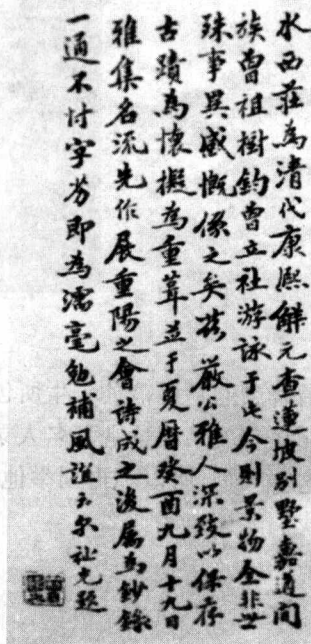 水西莊為清代康熙解元查蓮坡別墅嘉道間
族曾祖樹鈞曾立社游詠于此今則景物全非世
殊事異感慨係之矣茲嚴公雅人深致以保存
古蹟為懷擬為重葺並于夏曆癸酉九月十九日
雅集名流先作展重陽之會詩成之後屬為鈔錄
一通不忖字劣即為濡毫勉補風誼云尔 祉克題